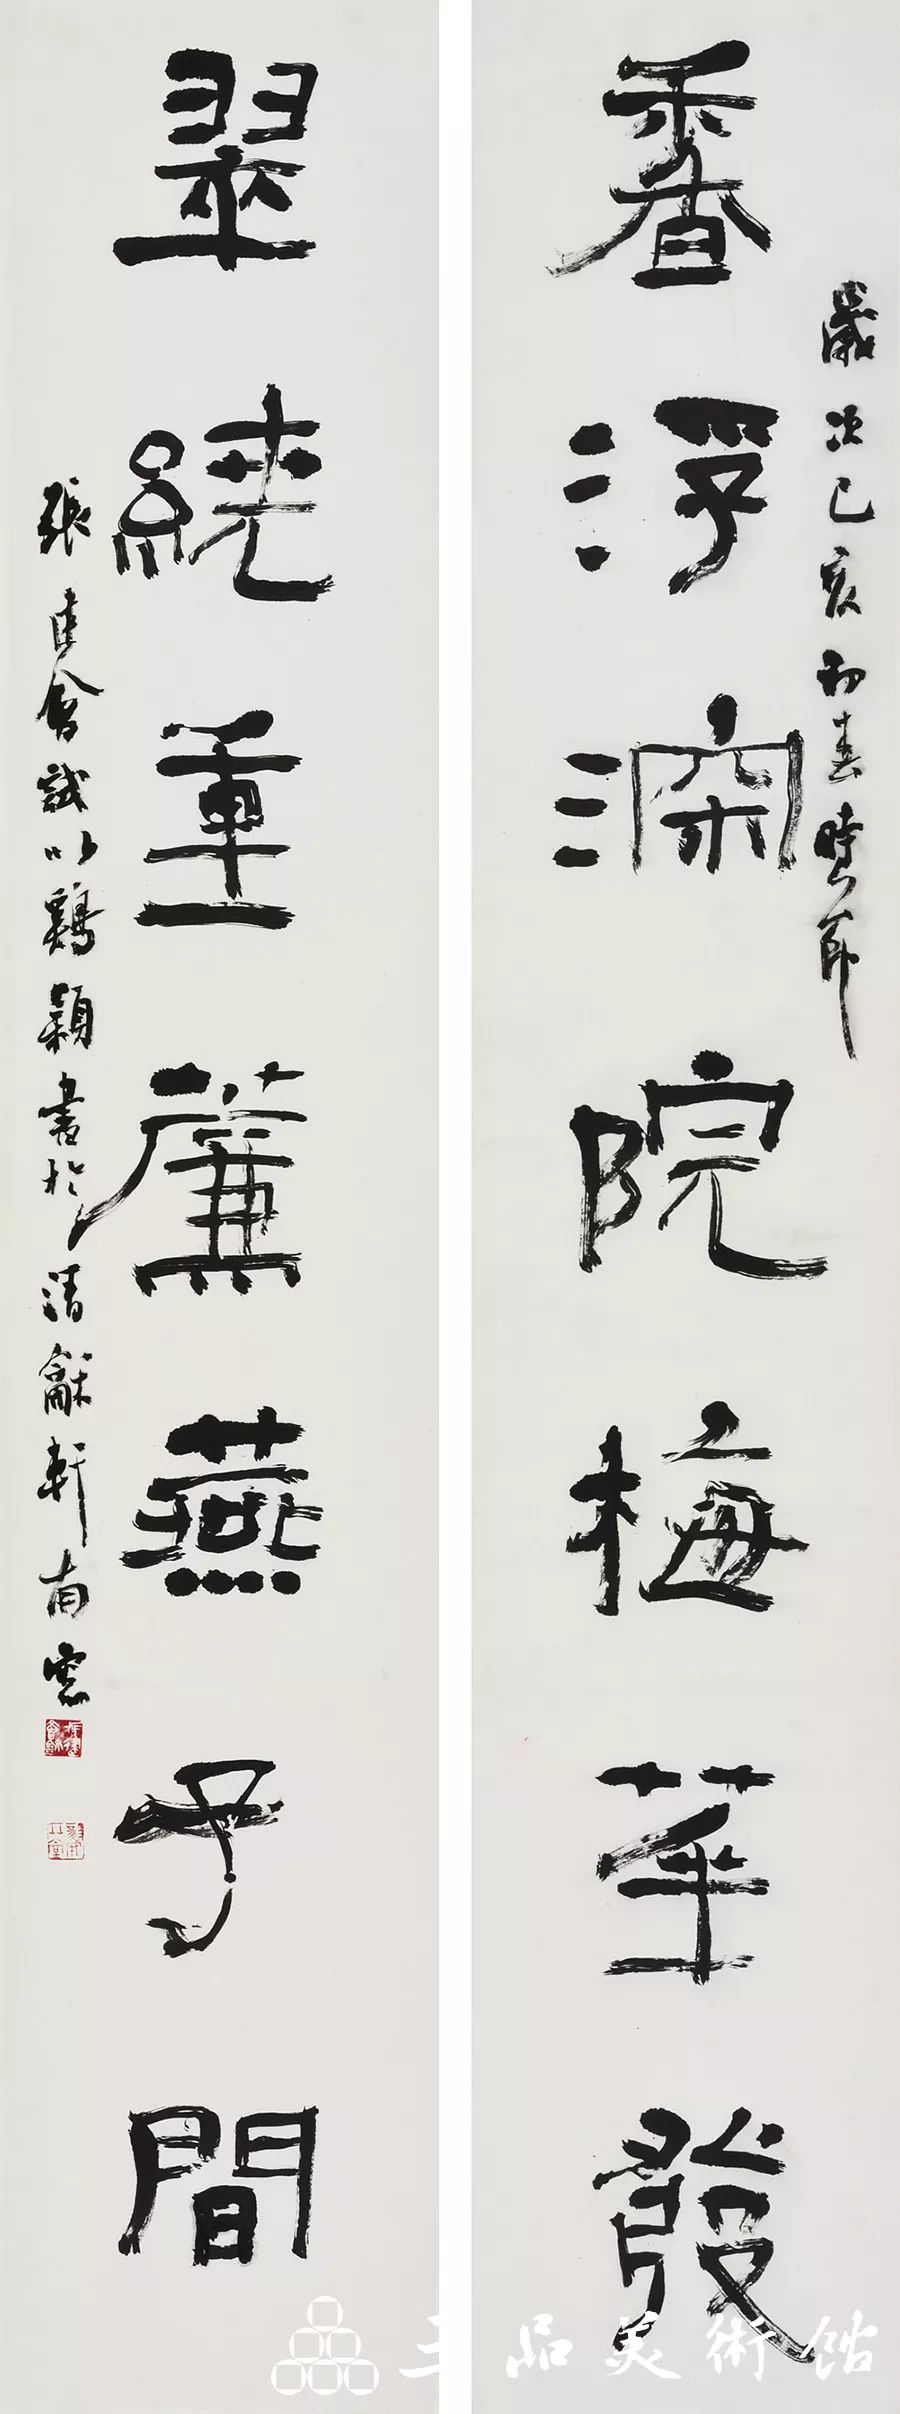 歲次己亥初春時節
香浮深院梅華發
翠繞重簾燕子間
張建會試以鷄穎書於清龢軒南窓
三品美術館